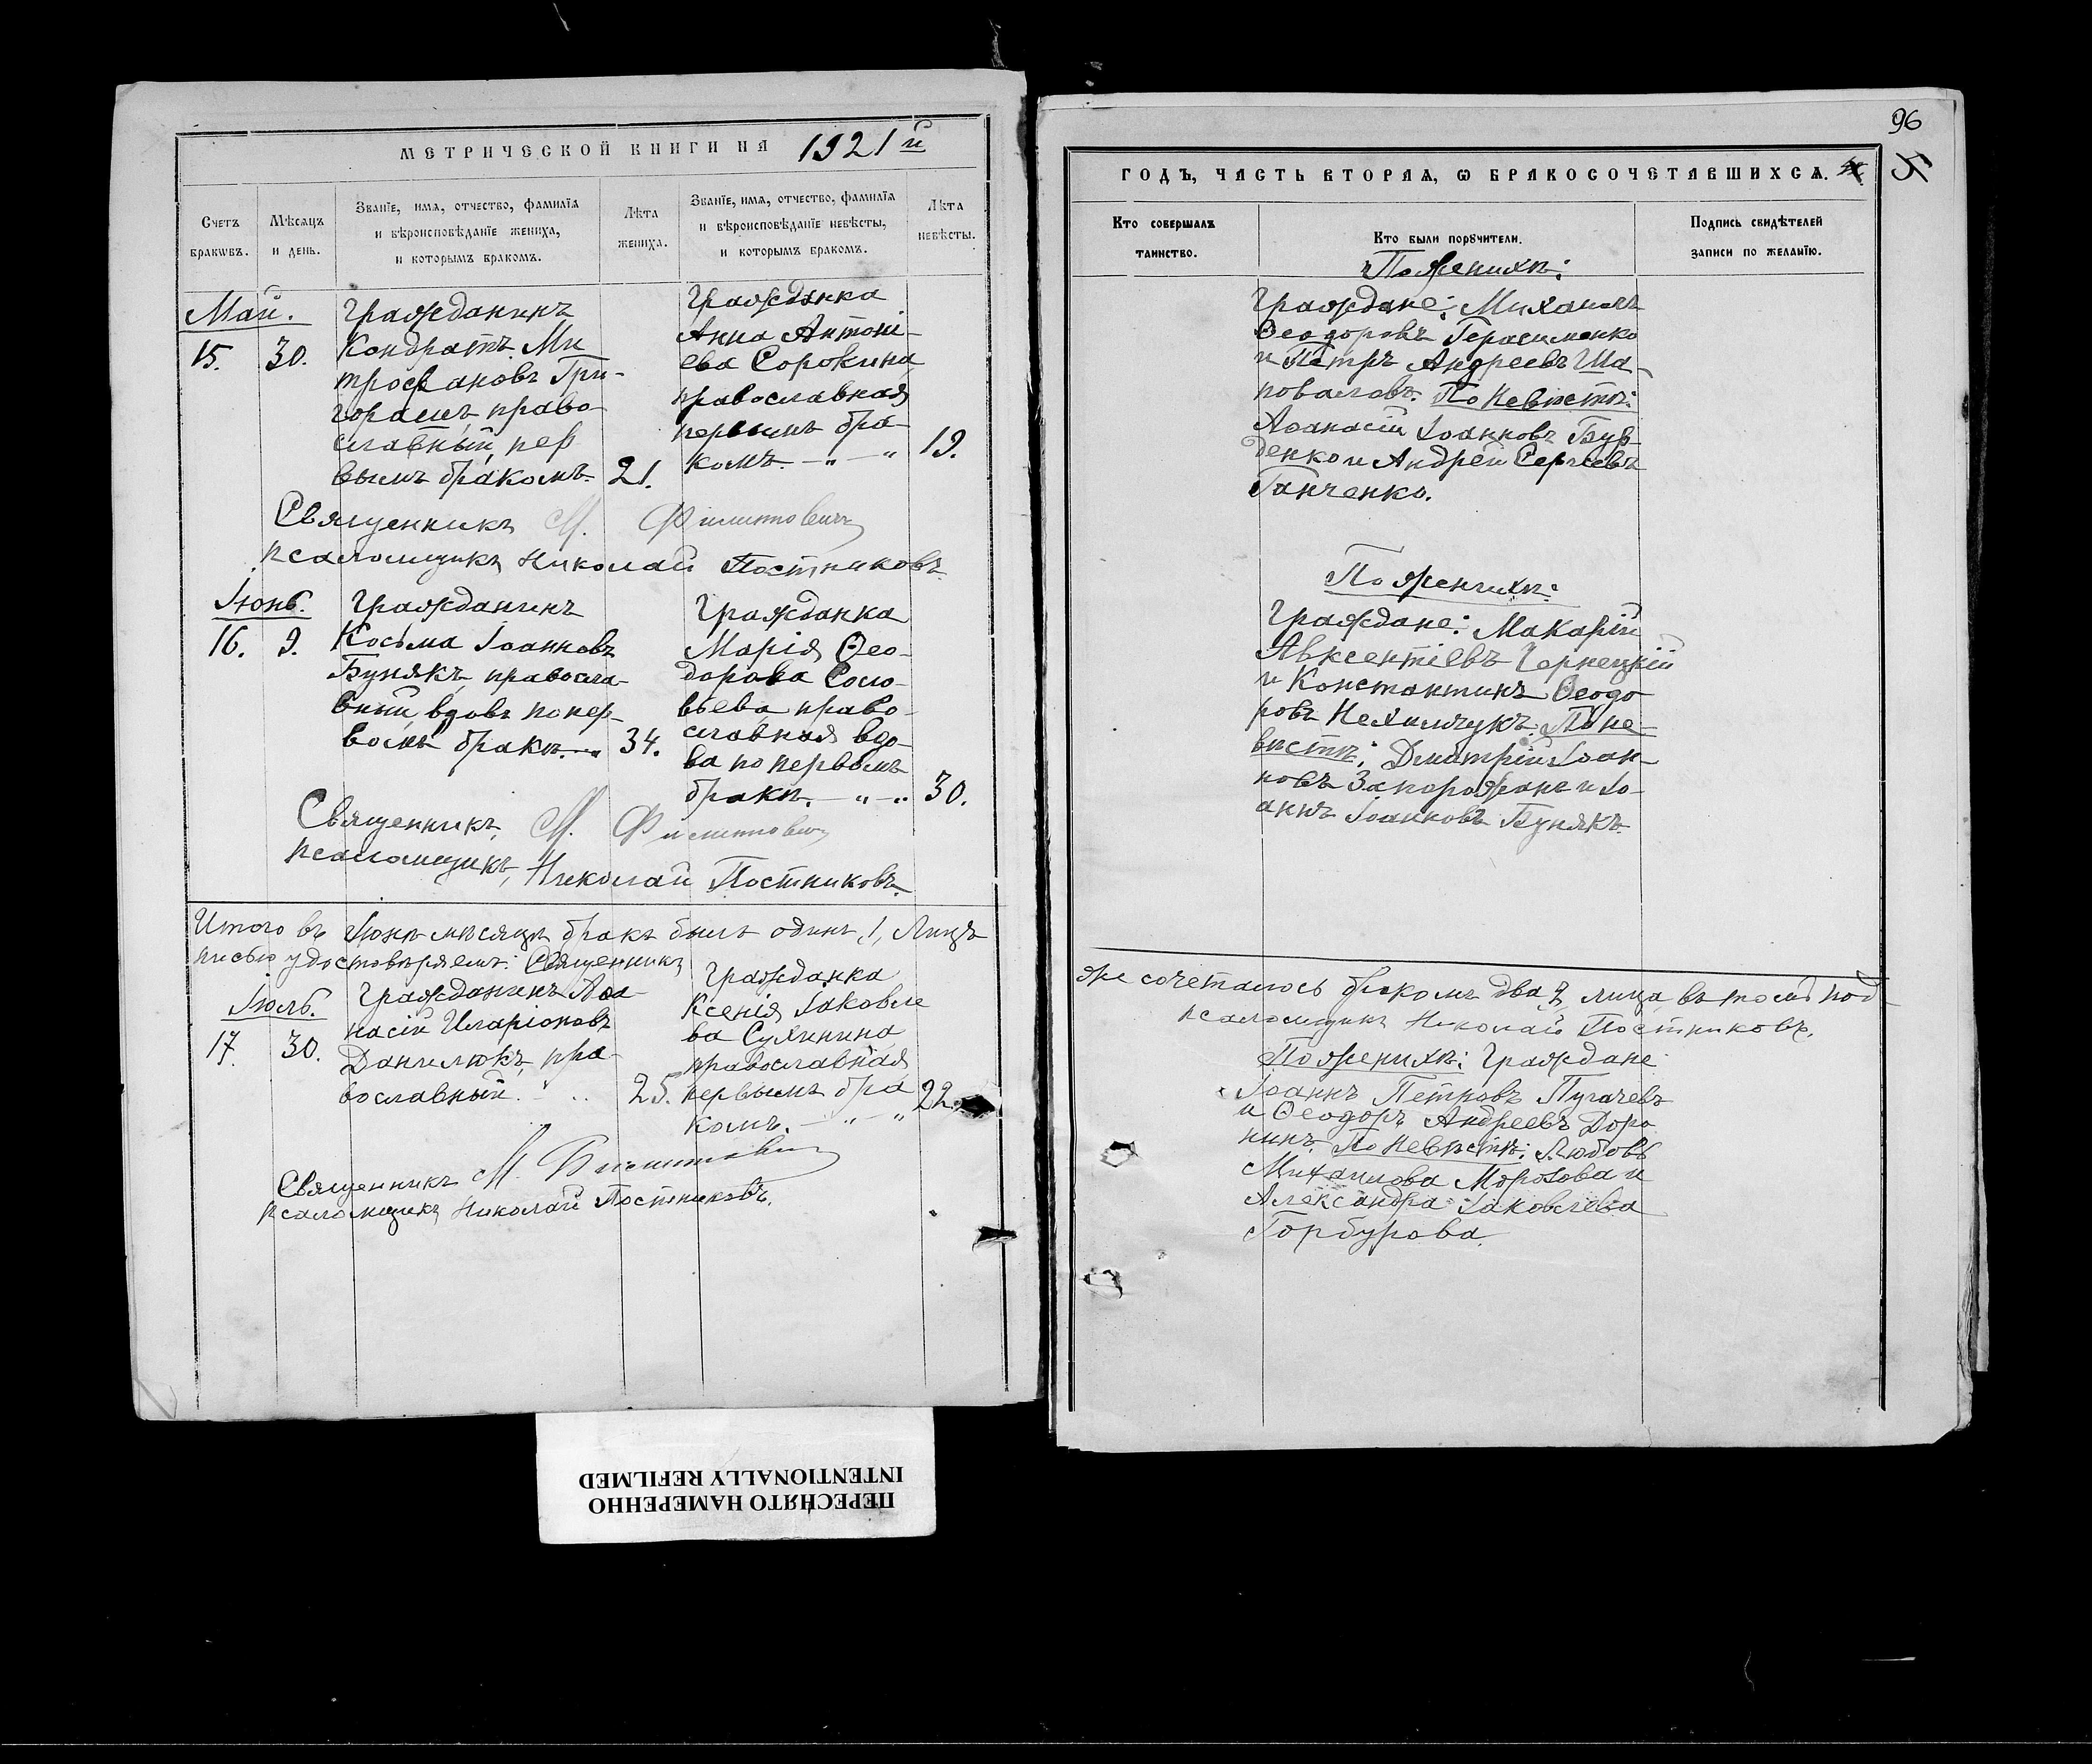 МЕТРИЧЕСКОЙ КНИГИ НА 1921 й
Счетъ браковъ.
Мѣсяцъ и день.
Званїе, имя, отчество, фамилїя
и вѣроисповѣданїе жениха,
и которымъ бракомъ.
Лѣта жениха.
Званїе, имя, отчество, фамилїя
и вѣроисповѣданїе невѣсты,
и которымъ бракомъ.
Лѣта невѣсты.
Май.
15. 30.
Гражданинъ
Кондратъ Ми
трофановъ Гри-
горашъ, право
славный, пер
вымъ бракомъ. 21.
Гражданка
Анна Антоні-
ева Сорокина
православная
первымъ бра-
комъ. - „ - „ 19.
Священникъ М. Филиповичъ
псаломщикъ Николай Постниковъ.
Іюнь.
16. 9.
Гражданинъ
Косьма Іоанновъ
Бунякъ, правосла-
вный, вдовъ по пер-
вомъ бракѣ. 34.
Гражданка
Марія Ѳео-
дорова Соло-
вьева право-
славная вдо-
ва по первымъ
бракѣ. - „ - „ 30.
Священникъ М. Филиповичъ
псаломщикъ, Николай Постниковъ.
Итого въ Іюнѣ мѣсяцѣ бракъ былъ одинъ, 1, Лицъ
писью удостовѣряемъ: Священникъ
Іюль.
17. 30.
Гражданинъ Аѳа-
насій Иларіоновъ
Данилюкъ, пра-
вославный. 25.
Гражданка
Ксенія Іаковле
ва Сулинина
православная
первымъ бра
комъ. - „ - „ 22.
Священникъ М. Филиповичъ
псаломщикъ Николай Постниковъ.
96
ГОДЪ, ЧАСТЬ ВТОРАЯ, Ѡ БРАКОСОЧЕТАВШИХСЯ.
Кто совершалъ
таинство.
Кто были порꙋчители.
Подпись свидѣтелей
записи по желанїю.
По женихѣ:
Граждане: Михаилъ
Ѳеодоровъ Герасименко
и Петръ Андреевъ Ша-
поваловъ. По невѣстѣ:
Аѳанасій Іоанновъ Бур
денко и Андрей Сергѣевъ
Ганченко.
По женихѣ:
Граждане: Макарій
Авксентіевъ Чернецкій
и Константинъ Ѳеодо
ровъ Нехимчукъ. По не-
вѣстѣ: Дмитрій Іоан-
новъ Запорожанъ и Іо-
аннъ Іоанновъ Бунякъ.
же сочеталось бракомъ два 2, лица въ томъ под-
псаломщикъ Николай Постниковъ.
По женихѣ: Граждане
Іоаннъ Петровъ Пугачевъ
и Ѳеодоръ Андреевъ Доро
нинъ. По невѣстѣ: Любовь
Михаилова Морозова и
Александра Іаковлева
Горбурова.
INTENTIONALLY REFILMED
ПЕРЕСНЯТО НАМЕРЕННО